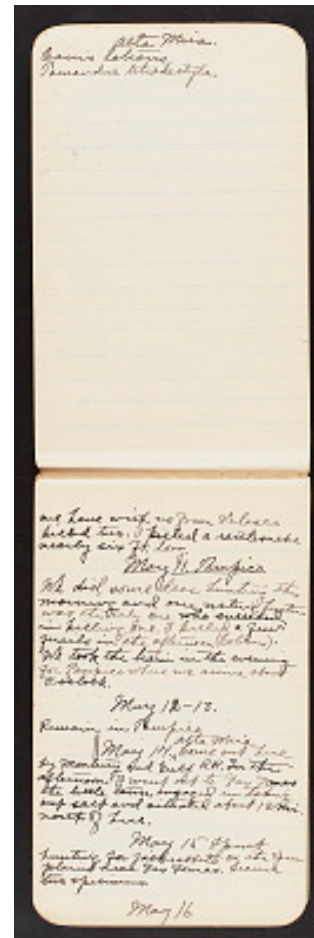 Alta Mira.
Canis latrans
Tamandua tetradactyla.
we have with us from Velasco
killed two. I killed a rattlesnake
nearly six ft. long.
May 11. Tampico
We did some deer hunting this
morning and our native hunter
was the only one who succeeded
in killing one. I killed a few
quails in the afternoon (Colinus).
We took the train in the evening
for Tampico where we arrive about
o'clock.
May 12-13.
Remain in Tampico
Alta Mira
May 14, Come out here
by Monterey and Gulf R.R. In the
afternoon I went out to
the little town, engaged in
salt and situated about 12 mi.
north of here.
May 15 Spent
hunting for jackrabbits on the open
plains near Tomas. Secure
two specimens
May 16